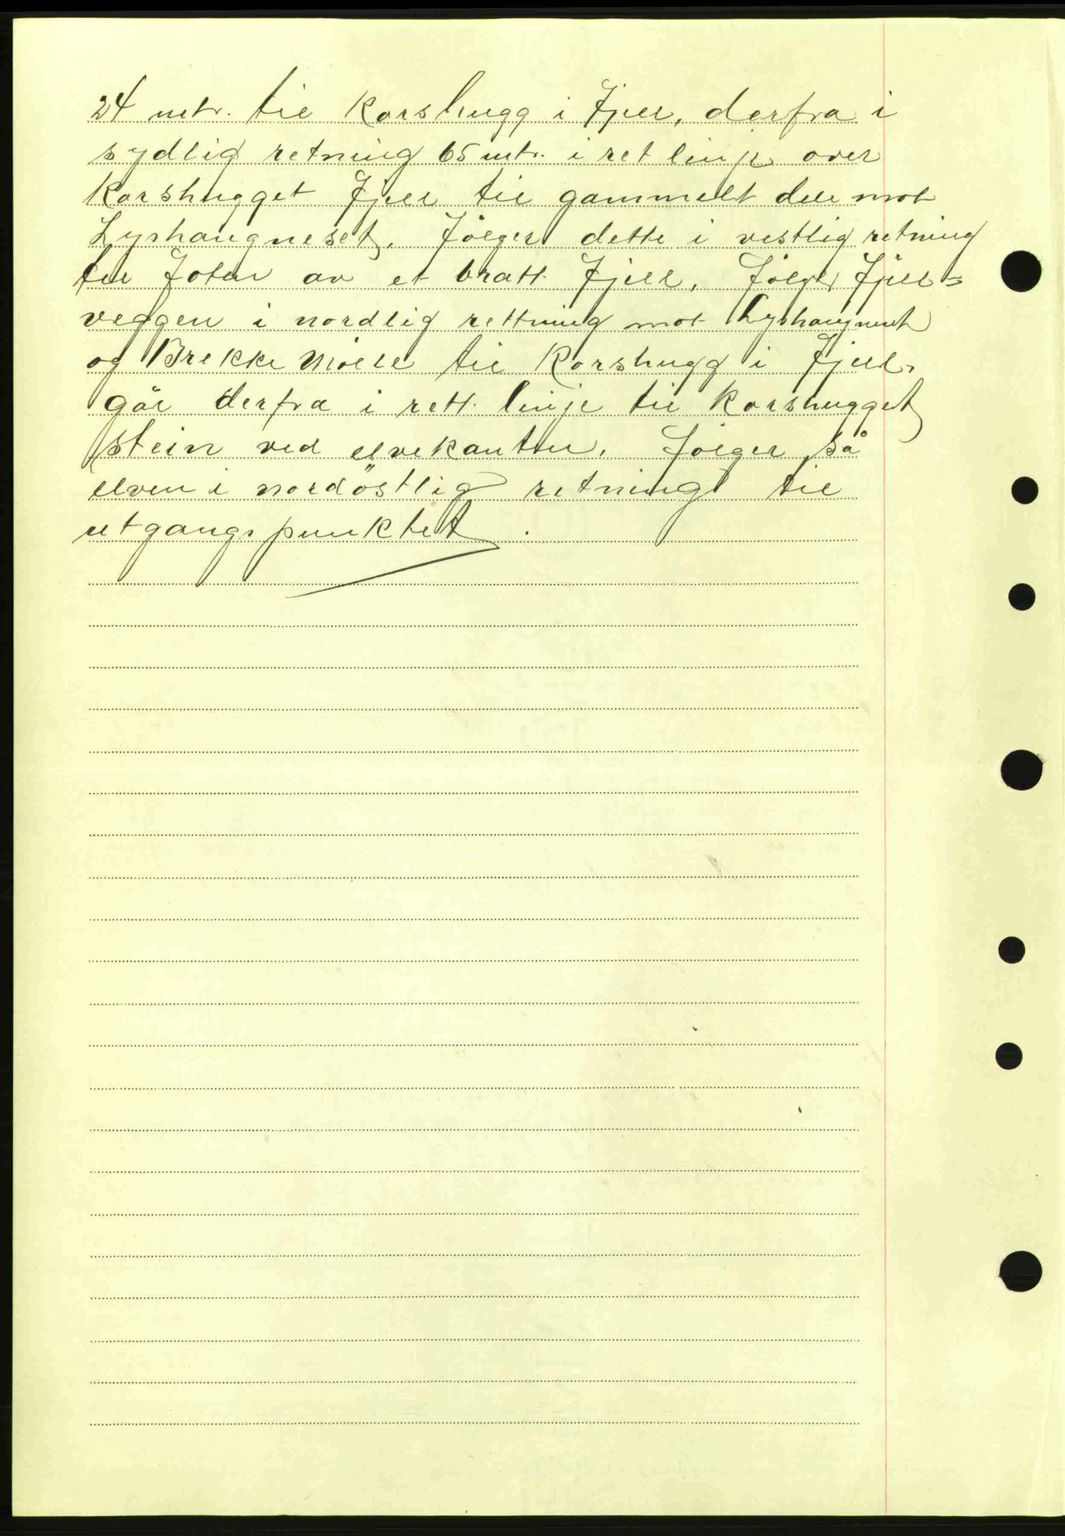 24 mtr. til Korshugg i Fjell, derfra i
sydlig retning 65 mtr. i ret linje over
Korshugget Fjell til gammelt dele mot
Lyshaugneset. Følger dette i vestlig retning
til foten av et bratt Fjell. Følger Fjell-
veggen i nordlig rettning mot Lyshaugneset
og Brekke Mølle til Korshugg i Fjell.
går derfra i rett linje til Korshugget
stein ved elvekanten. Følger så
elven i nordöstlig retning til
utgangspunktet.